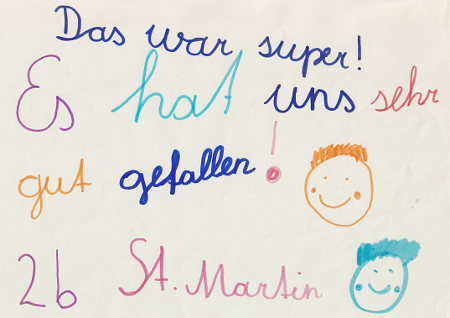 Das war super!
Es hat uns sehr
gut gefallen!
2b St. Martin